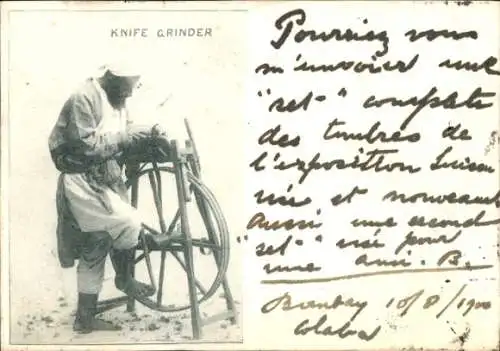 KNIFE GRINDER
Pourriez vous
m'envoier une
"set" complete
des timbres de
l'exposition Suisse
et nouveau
aussi une second
"set" usé pour
une ami. B.
Bombay 10/8/1900
Colaba